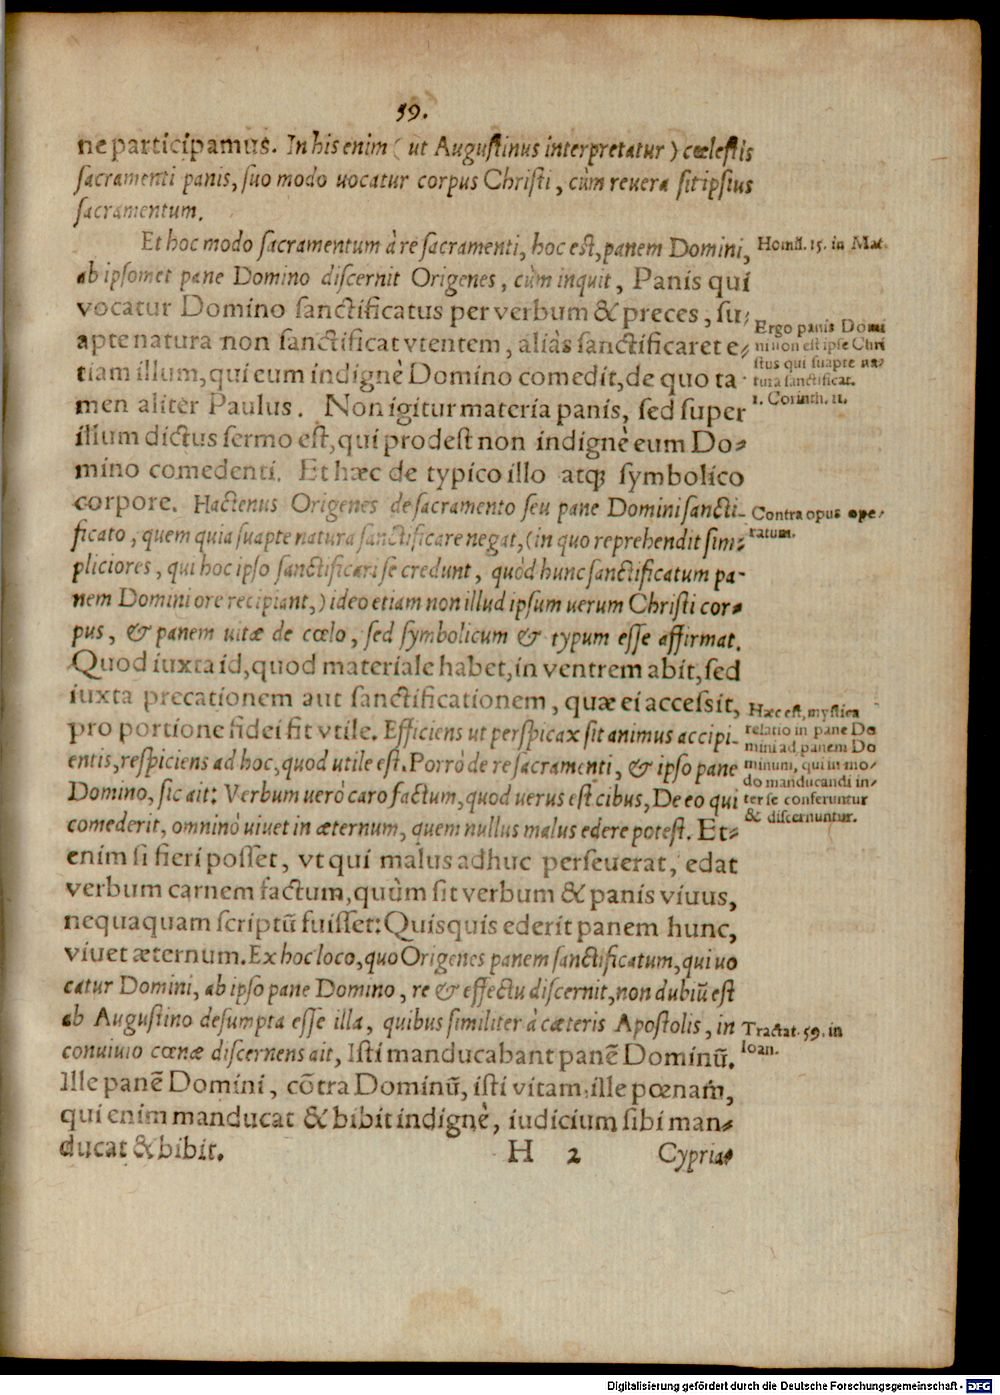 59.
ne participamus. In his enim ( ut Augustinus interpretatur ) cœlestis
sacramenti panis, suo modo uocatur corpus Christi, cùm reuera sit ipsius
sacramentum.
Et hoc modo sacramentum à re sacramenti, hoc est, panem Domini,
ab ipsomet pane Domino discernit Origenes, cùm inquit, Panis qui
vocatur Domino sanctificatus per verbum & preces, su-
apte natura non sanctificat vtentem, aliàs sanctificaret e-
tiam illum, qui eum indignè Domino comedit, de quo ta-
men aliter Paulus. Non igitur materia panis, sed super
illum dictus sermo est, qui prodest non indignè eum Do-
mino comedenti. Et hæc de typico illo atq; symbolico
corpore. Hactenus Origenes de sacramento seu pane Domini sancti-
ficato, quem quia suapte natura sanctificare negat, (in quo reprehendit sim-
pliciores, qui hoc ipso sanctificari se credunt, quòd hunc sanctificatum pa-
nem Domini ore recipiant,) ideo etiam non illud ipsum uerum Christi cor-
pus, & panem uitæ de cœlo, sed symbolicum & typum esse affirmat.
Quod iuxta id, quod materiale habet, in ventrem abit, sed
iuxta precationem aut sanctificationem, quæ ei accessit,
pro portione fidei fit vtile. Efficiens ut perspicax sit animus accipi-
entis, respiciens ad hoc, quod utile est. Porrò de re sacramenti, & ipso pane
Domino, sic ait: Verbum uerò caro factum, quod uerus est cibus, De eo qui
comederit, omninò uiuet in æternum, quem nullus malus edere potest. Et-
enim si fieri posset, vt qui malus adhuc perseuerat, edat
verbum carnem factum, quùm sit verbum & panis viuus,
nequaquam scriptū fuisset: Quisquis ederit panem hunc,
viuet æternum. Ex hoc loco, quo Origenes panem sanctificatum, qui uo
catur Domini, ab ipso pane Domino, re & effectu discernit, non dubiū est
ab Augustino desumpta esse illa, quibus similiter à cæteris Apostolis, in
conuiuio cœnæ discernens ait, Isti manducabant panē Dominū.
Ille panē Domini, cōtra Dominū, isti vitam, ille pœnam,
qui enim manducat & bibit indignè, iudicium sibi man-
ducat & bibit.
H 2 Cypria-
Homil. 15. in Mat.
Ergo panis Domi
ni non est ipse Chri
stus qui suapte na-
tura sanctificat.
1. Corinth. 11.
Contra opus ope-
ratum.
Hæc est, mystica
relatio in pane Do
mini ad panem Do
minum, qui in mo-
do manducandi in-
ter se conferuntur
& discernuntur.
Tractat. 59. in
Ioan.
Digitalisierung gefördert durch die Deutsche Forschungsgemeinschaft - DFG